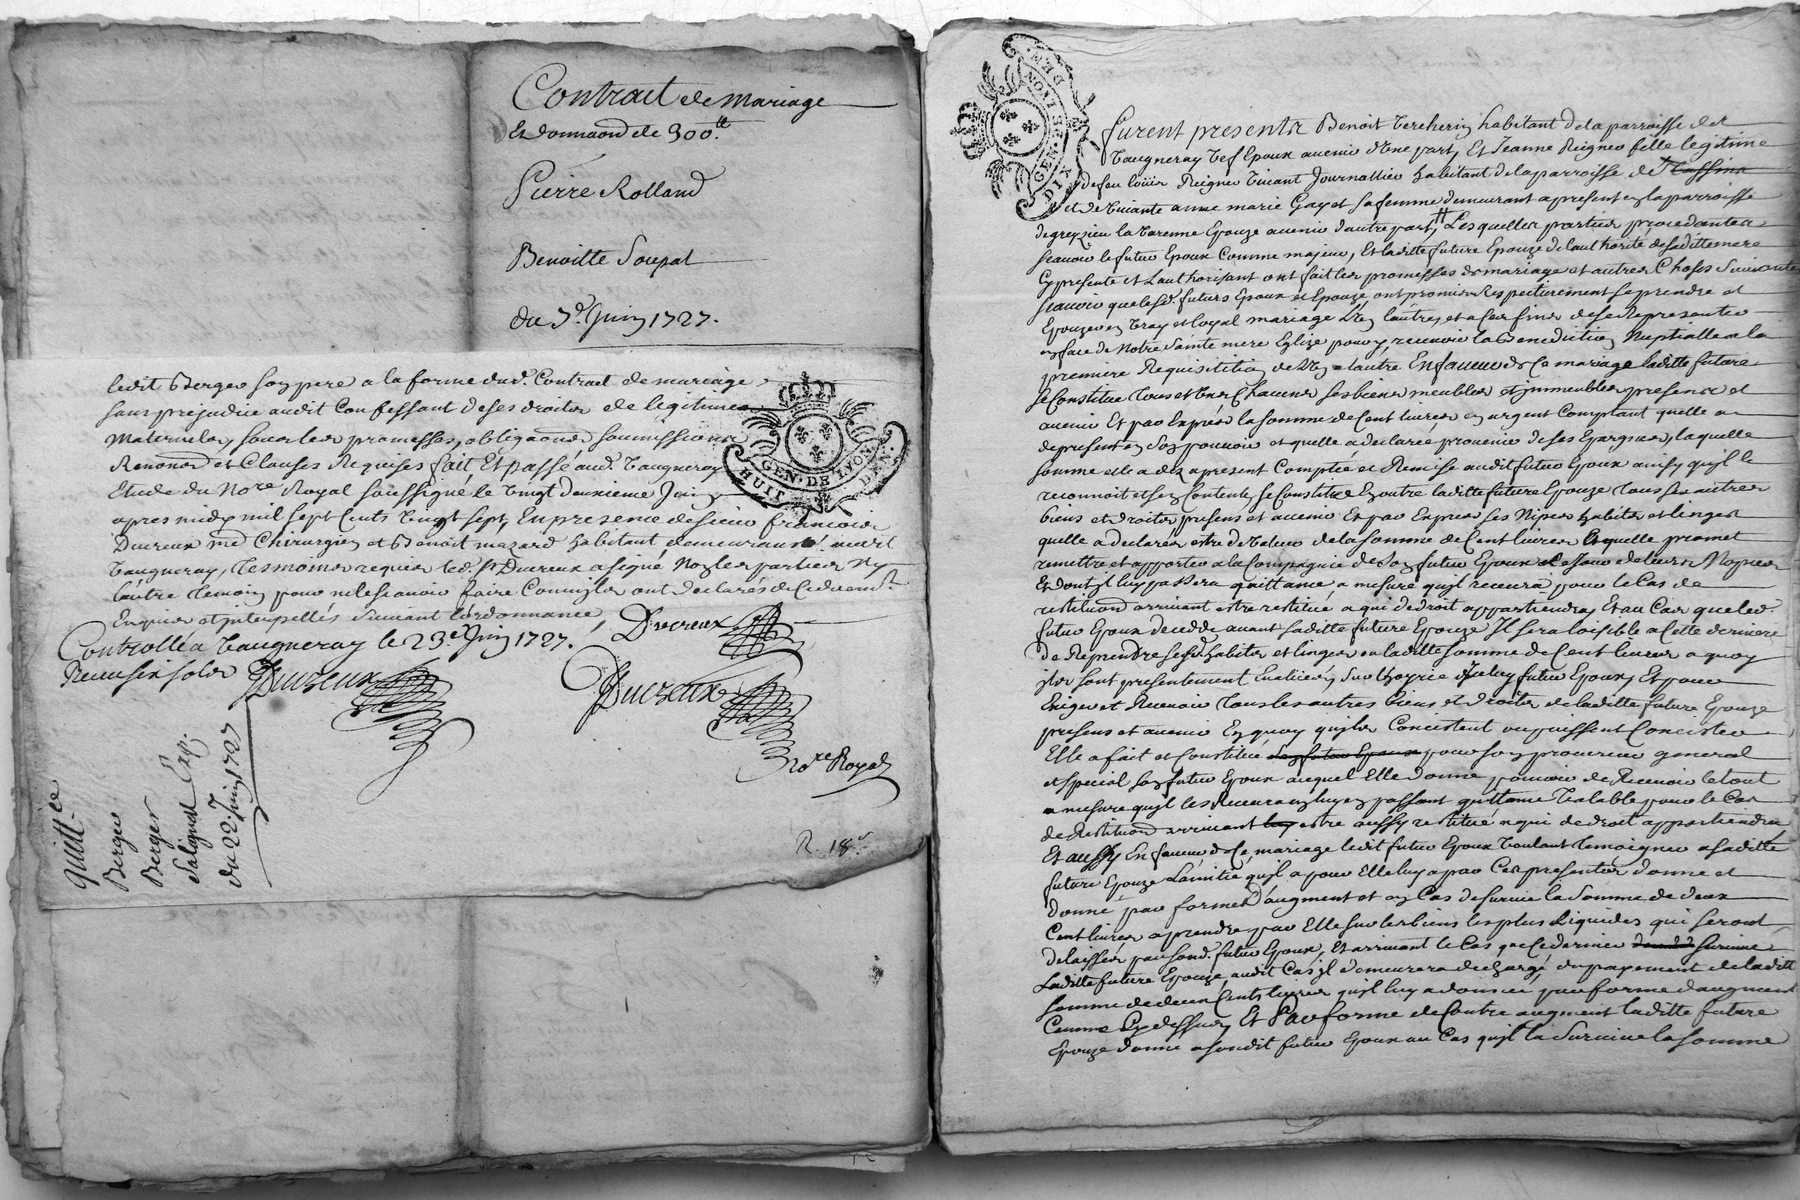 Contract de Mariage
Et donnaon de 300.ll
Pierre Rolland
Benoitte Soupat
du 3.e Juin 1727.
ledit Berger son pere a la forme dud. Contract de mariage
sans prejudice audit Confessant de ses droits de legitimes
Maternels, sous les promesses, obligaons soumissions
Renonons et Clauses Requises fait Et passé aud. Vaugneray
Etude du No.re Royal soussigné le vingt deuxieme Juin
apres midy mil sept Cents vingt sept, En presence de sieur francois
Ducreux m.e Chirurgien et Benoit mazard habitant audit
Vaugneray, Tesmoins requis led. s.r Ducreux a signé Non les parties Ny
l'autre temoin pour ne le scavoir faire Comm'ils ont declarés de ce
Enquis et interpellés suivant l'ordonnance,
Ducreux
Controllé a Vaugneray le 23.e Juin 1727.
Receu six sols
Ducreux
Ducreux
No.re Royal
R. 18.s
Quitt.ce
Berger
Berger
Salignat Cap.
du 22.e Juin 1727
GEN · DE LYON
HUIT DEN.
GEN · DE LYON
DIX DEN.
furent presents Benoit Vercherin habitant de la parroisse de
Vaugneray Vef Epoux avenir d'Une part, Et Jeanne Reignier fille legitime
de feu loüis Reignier vivant Journallier habitant de la parroisse de
et de vivante anne marie Gayet sa femme demeurant a present en la parroisse
de grezieu la Varenne Epouze avenir d'autre part, Lesquelles parties procedantes
scavoir le futur Epoux Comme majeur, Et ladite future Epouze de l'authorité de sadite mere
Cy presente et L'authorisant ont fait les promesses de mariage et autres Choses suivantes
scavoir que lesd. futurs Epoux et Epouze, ont promis Respectivement se prendre et
Epouzer en vray et loyal mariage L'Un l'autre, et a ces fins de se Representer
en face de Notre sainte mere Eglize pour y recevoir la Benediction Nuptialle a la
premiere Requisition de L'Un a lautre En faveur de Ce mariage ladite future
se Constitue Tous et Uns Chacuns ses biens meubles et immeubles presens et
avenir Et par Exprés la somme de Cent livres en argent Comptant quelle a
de present en son pouvoir et quelle a declarée provenir de ses Epargnes, laquelle
somme elle a des a present Comptée et Remise audit futur Epoux ainsy qu'il le
reconnoit et sen Contente, se Constitue En outre ladite future Epouze tous ses autres
biens et droits presens et avenir Et par Exprés ses Nipes habits et linges
quelle a declarés estre de valeur de la somme de Cent livres lesquelle promet
remettre et apporter a la compagnie de son futur Epoux le Jour de leurs Nopces
Et dont il luy passera quittance, a mesure qu'il recevra pour le Cas de
restitution arrivant estre restitué a qui de droit appartiendra, Et au Cas que led.
futur Epoux decedde avant sadite future Epouze Il sera loisible a Cette derniere
de Reprendre sesd. habits et linges ou ladite somme de Cent livres a quoy
ils sont presentement Evalués, sur l'hoyrie d'Iceluy futur Epoux, Et pour
Exiger et Recevoir Tous les autres biens et droits de ladite future Epouze
presens et avenir En quoy qu'ils Concistent ou puissent Concister
Elle a fait et Constitué son futur Epoux pour son procureur general
et special son futur Epoux auquel Elle donne pouvoir de Recevoir le tout
a mesure qu'il les Recevra en luy en passant quittance valable pour le Cas
de Restitution arrivant luy estre aussy restitué a qui de droit appartiendra
Et aussy En faveur de Ce mariage ledit futur Epoux voulant Temoigner a sadite
future Epouze L'amitié qu'il a pour Elle luy a par Ces presentes donné et
donne par forme d'augment et en Cas de survie la somme de deux
Cent livres a prendre par Elle sur les biens les plus liquides qui seront
delaissés par sond. futur Epoux, Et arrivant le Cas que Ce dernier survive
Ladite future Epouze, audit Cas il demeurera dechargé, du payement de ladite
somme de deux Cents livres qu'il luy a donnée par forme d'augment
Comme Cy dessus, Et Par forme de Contre augment ladite future
Epouze donne a sondit futur Epoux au Cas qu'il la survive la somme